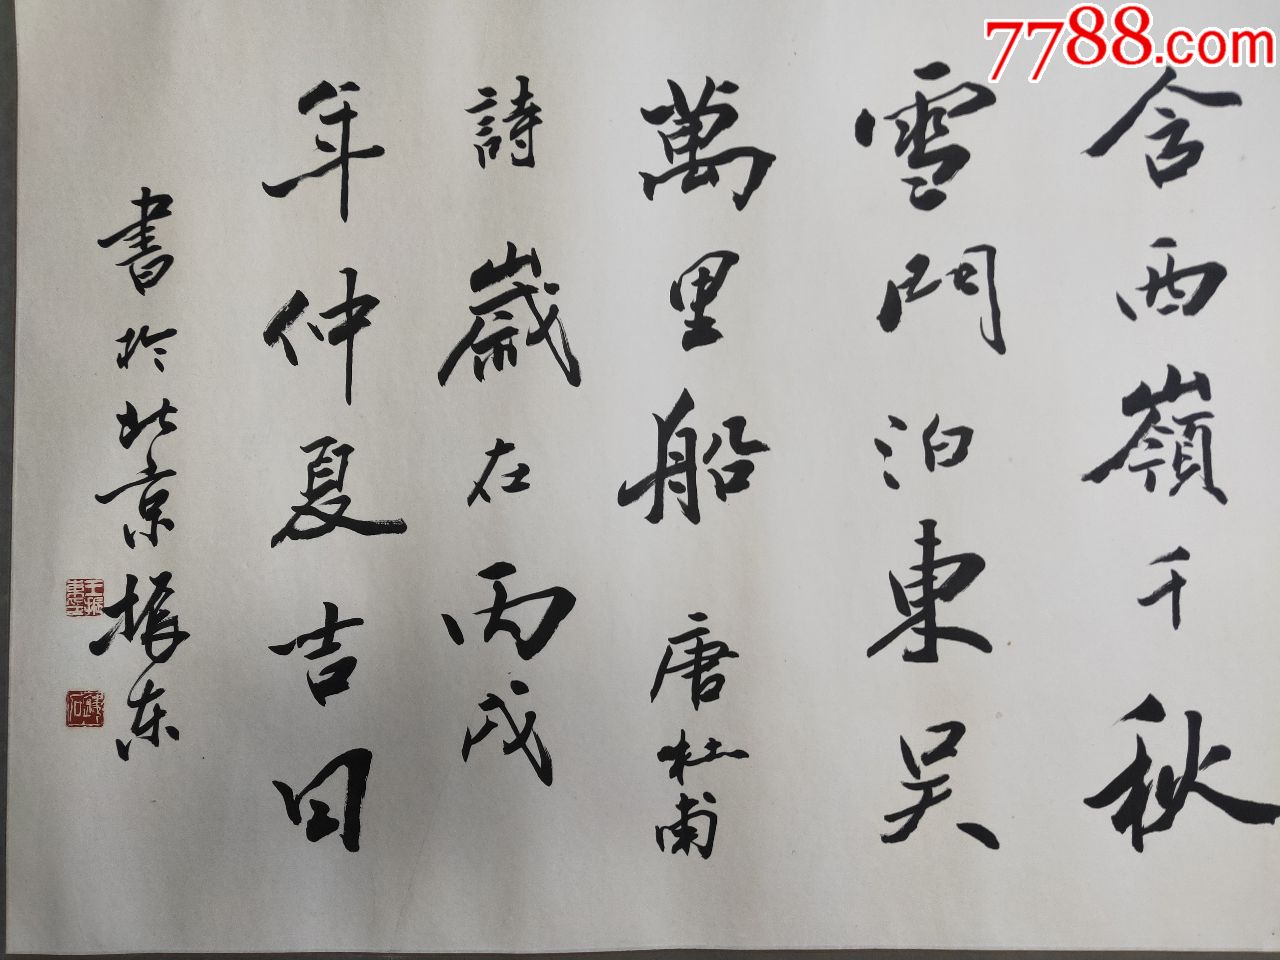 含西嶺千秋
雪門泊東吴
萬里船 唐杜甫
詩歲在丙戌
年仲夏吉日
書於北京振东
王振東印
鐵石
7788.com